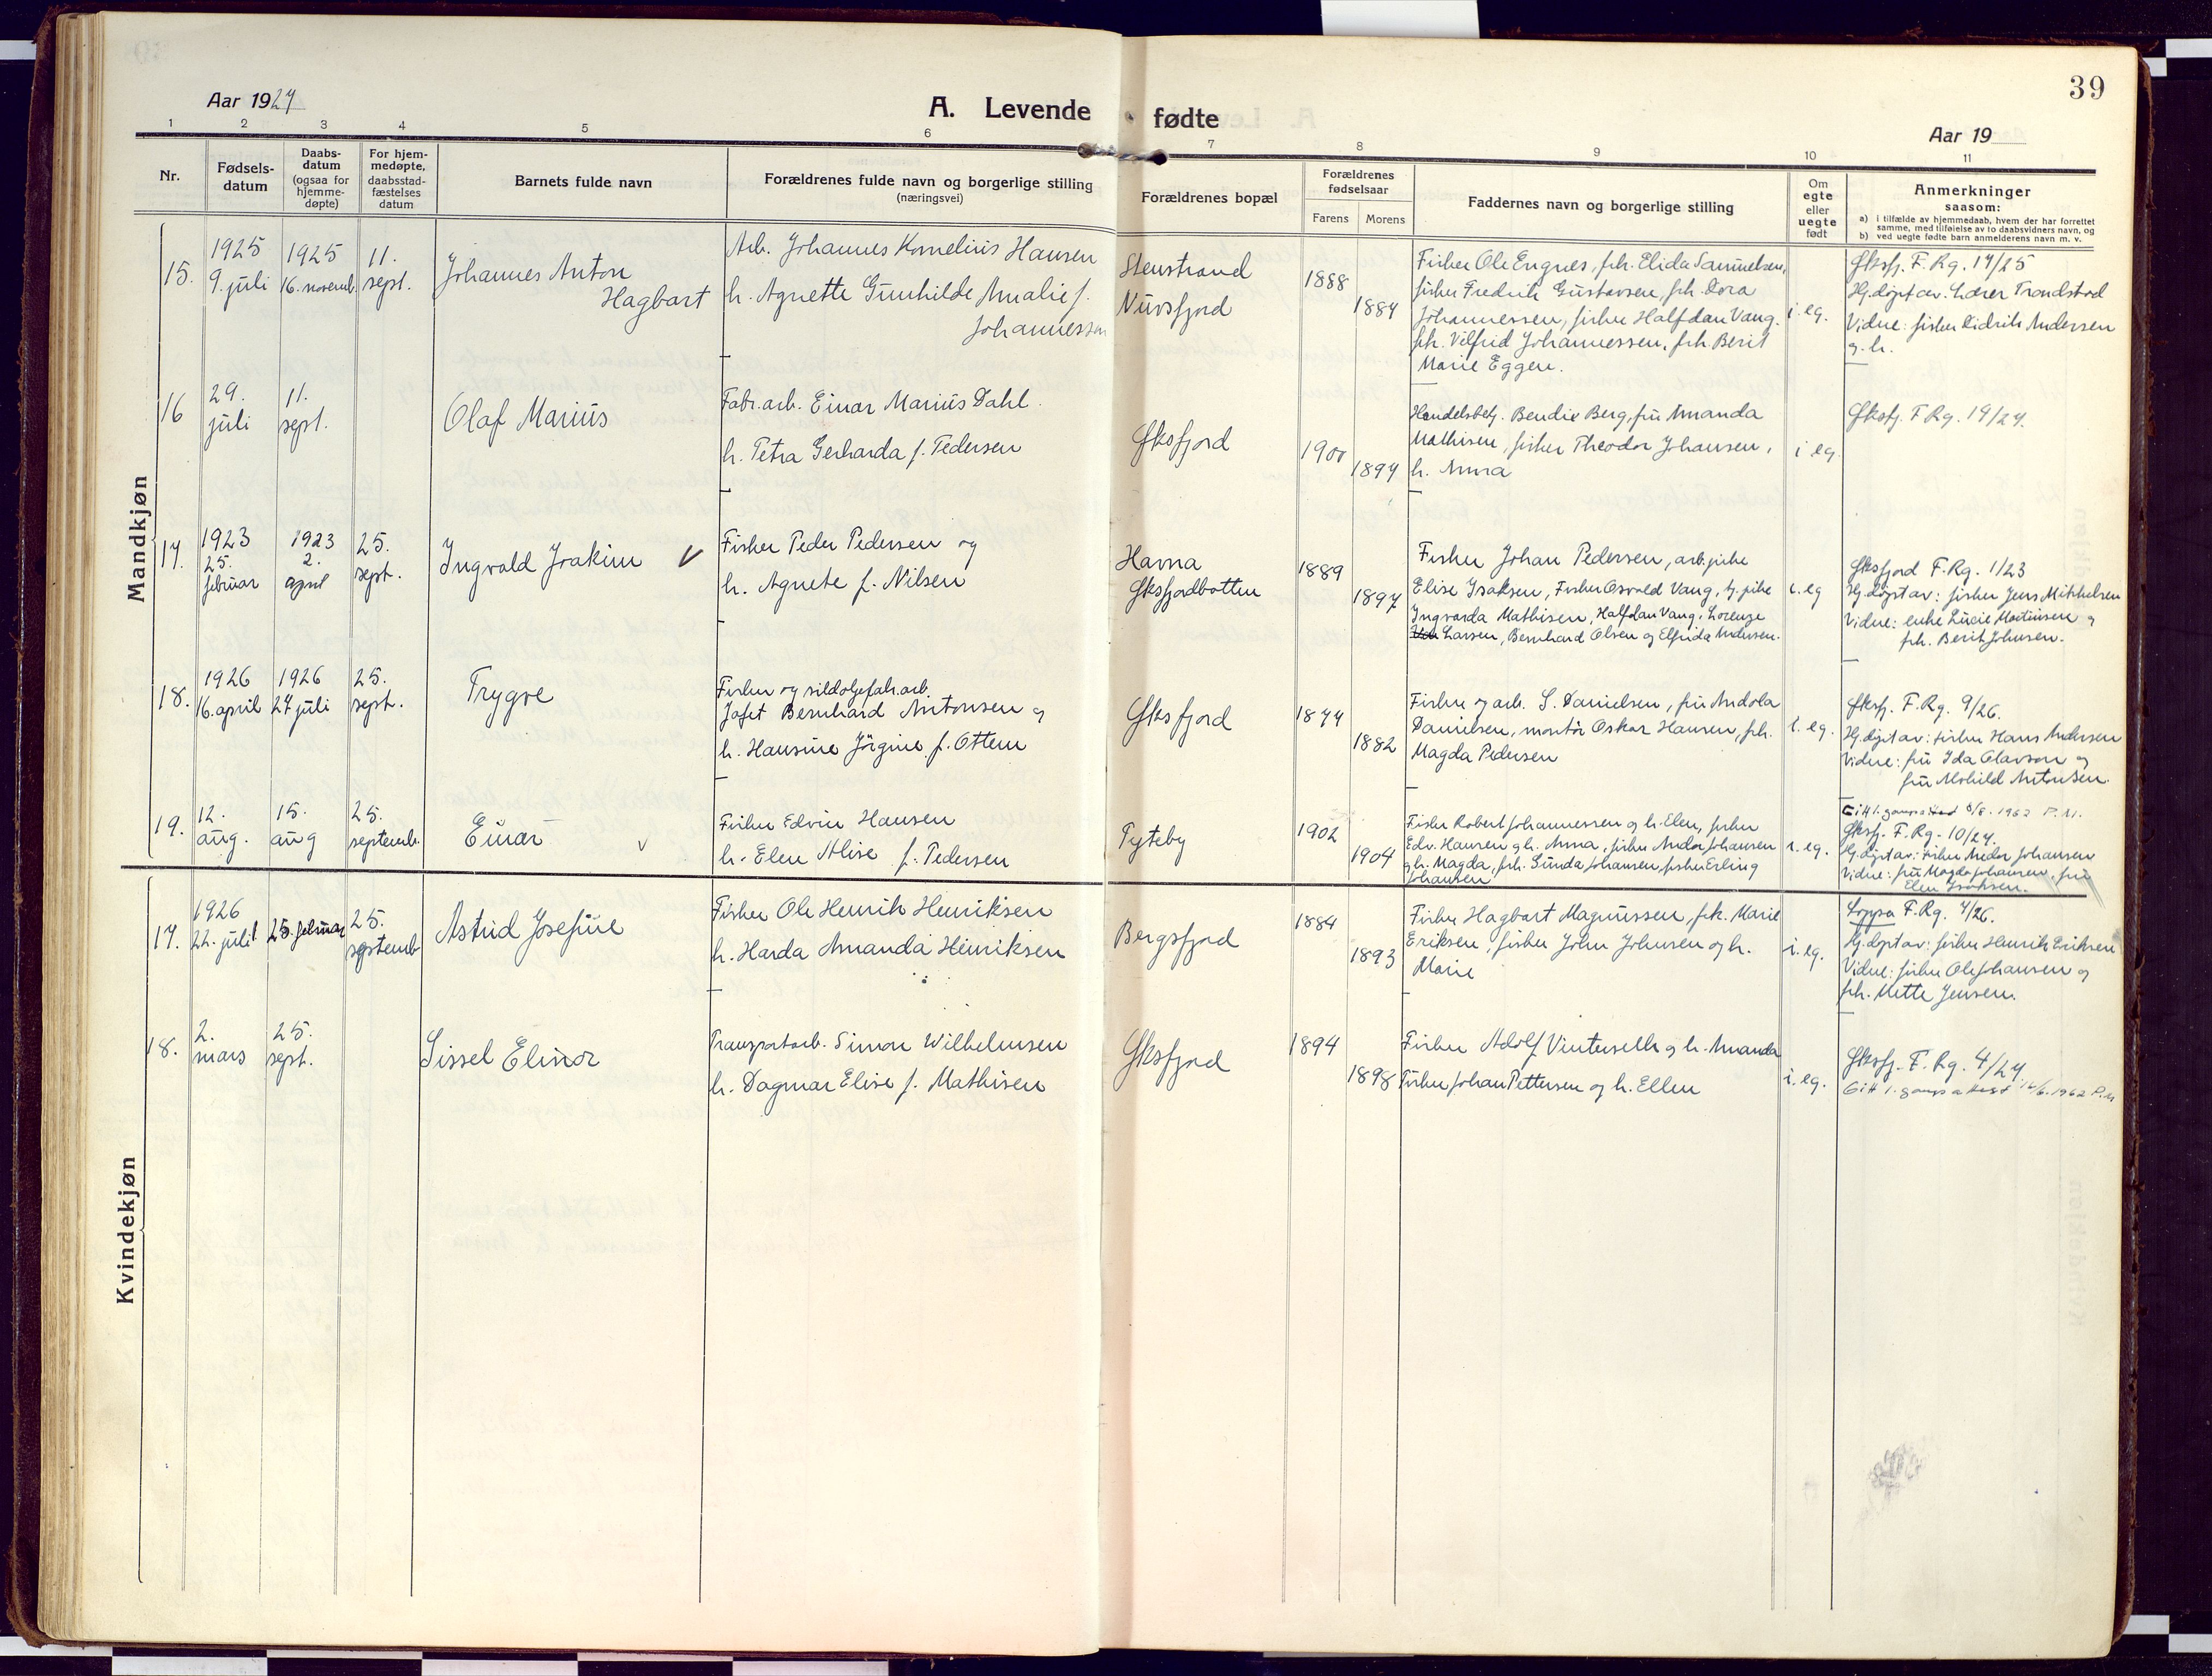 39
Aar 1927
A. Levende fødte
Aar 19
1 2 3 4 5 6 7 8 9 10 11
Nr.
Fødsels-
datum
Daabs-
datum
(ogsaa for
hjemme-
døpte)
For hjem-
medøpte,
daabsstad-
fæstelses
datum
Barnets fulde navn
Forældrenes fulde navn og borgerlige stilling
(næringsvei)
Forældrenes bopæl
Forældrenes
fødselsaar
Farens Morens
Faddernes navn og borgerlige stilling
Om
egte
eller
uegte
født
Anmerkninger
saasom:
a) i tilfælde av hjemmedaab, hvem der har forrettet
samme, med tilføielse av to daabsvidners navn, og
b) ved uegte fødte barn anmelderens navn m. v.
Mandkjøn
15.
1925
9. juli
1925
16. novemb.
11.
sept.
Johannes Anton
Hagbart
Arb. Johannes Kornelius Hansen
h. Agnette Gunhilde Amalie f.
Johannessen
Stenstrand
Nuvsfjord
1888
1884
Fisker Ole Engnes, frk. Elida Samuelsen,
fisker Fredrik Gustavsen, frk. Dora
Johannessen, fisker Halfdan Vang.
frk. Vilfrid Johannessen, frk. Berit
Marie Eggen.
i eg.
Øksfj. F. Rg. 17/25
Hj. døpt av: Lærer Trondstad
Vidne: fisker Didrik Andersen
og h.
16
29.
juli
11.
sept.
Olaf Marius
Fabr. arb. Einar Marius Dahl
h. Petra Gerharda f. Pedersen
Øksfjord
1900
1897
Handelsbetj. Bendix Berg, fru Amanda
Mathisen, fisker Theodor Johansen,
h. Anna
i eg.
Øksfj. F. Rg. 19/27.
17.
1923
25.
februar
1923
2.
april
25.
sept.
Ingvald Joakim V
Fisker Peder Pedersen og
h. Agnete f. Nilsen
Havna
Øksfjordbotten
1889
1897
Fisker Johan Pedersen, arb. pike
Elise Isaksen, Fisker Osvald Vang, tj. pike
Ingvarda Mathisen, Halfdan Vang, Lorenze
Larsen, Bernhard Olsen og Elfrida Andersen.
i. eg
Øksfjord F. Rg. 1/23
Hj. døpt av: fisker Jens Mikkelsen
Vidne: enke Lucie Martinsen og
frk. Berit Johnsen.
18.
1926
16. april
1926
27 juli
25.
sept.
Trygve
Fisker og sildoljefab. arb.
Jafet Bernhard Antonsen og
h. Hansine Jørgine f. Ottem
Øksfjord
1877
1882
Fisker og arb. S. Danielsen, fru Andola
Danielsen, montør Oskar Hansen, frk.
Magda Pedersen
i. eg.
Øksfj. F. Rg. 9/26.
Hj. døpt av: fisker Hans Andersen
Vidne: fru Ida Olavson og
fru Alvhild Antonsen.
19.
12.
aug.
15.
aug
25.
septemb.
Einar v
Fisker Edvin Hansen
h. Elen Alise f. Pedersen
Tyteby
1902
1904
Fisker Robert Johannessen og h. Elen, fisker
Edv. Hansen og h. Anna, fisker Andor Johansen
og h. Magda, frk. Gunda Johansen, fisker Erling
Johansen
i. eg.
Gitt 1. gangs attest 6/8. 1962 P.M.
Øksfj. F. Rg. 10/27.
Hj. døpt av: fisker Andor Johansen
Vidne: fru Magda Johansen, fru
Elen Isaksen.
Kvindekjøn
17.
1926
22. juli
25. februar
25.
septemb
Astrid Josefine
Fisker Ole Henrik Henriksen
h. Harda Amanda Heinriksen
Bergsfjord
1884
1893
Fisker Hagbart Magnussen, frk. Marie
Eriksen, fisker John Johnsen og h.
Marie
i. eg.
Loppa F. Rg. 4/26.
Hj. døpt av: fisker Henrik Eriksen
Vidne: fisker Ole Johansen og
frk. Mette Jensen.
18.
2.
mars
25.
sept.
Sissel Elinor
Transportarb. Simon Wilhelmsen
h. Dagmar Elise f. Mathisen
Øksfjord
1894
1898
Fisker Adolf Vinterselh og h. Amanda
Fisker Johan Pettersen og h. Ellen
i. eg.
Øksfj. F. Rg. 4/27
Gitt 1. gangs attest 16/6. 1962 P.M